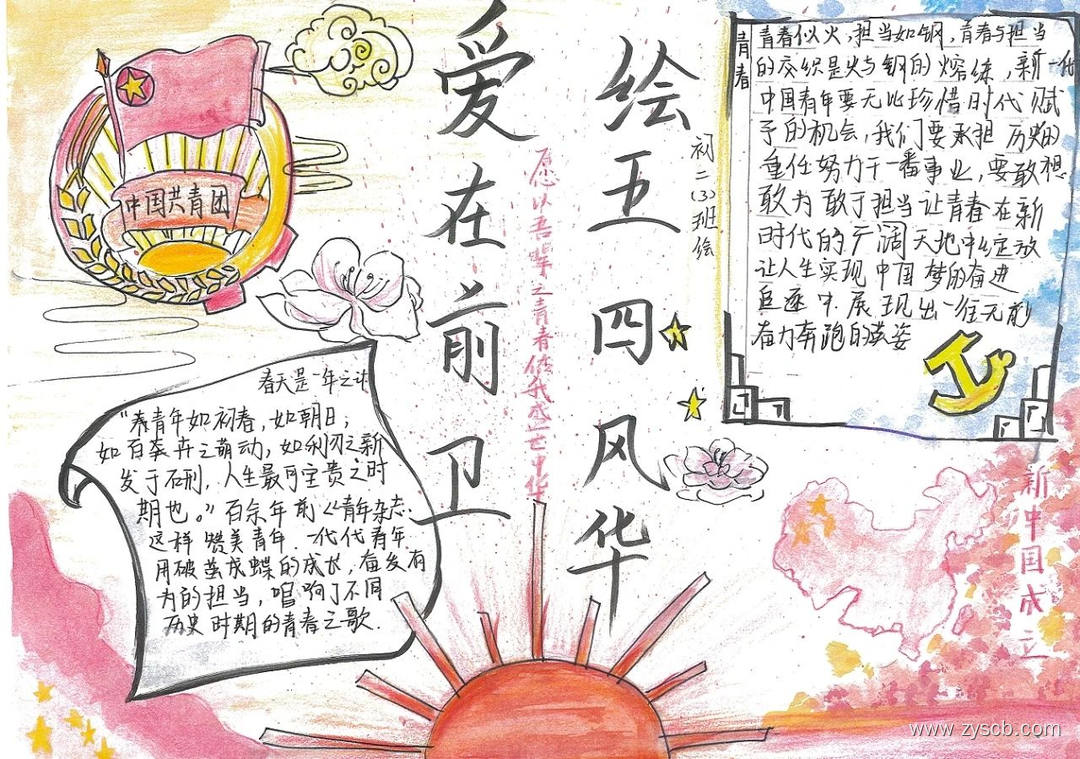 绘五四风华
爱在前卫
初二(3)班绘
愿以吾辈之青春传我盛世中华
中国共青团
青春
青春似火,担当如钢,青春与担当
的交织是火与钢的熔练,新一代
中国青年要无比珍惜时代赋
予的机会,我们要承担历史的
重任努力干一番事业,要敢想
敢为敢于担当让青春在新
时代的广阔天地中绽放
让人生实现中国梦的奋进
追逐中展现出一往无前
奋力奔跑的英姿
春天是一年之计
"青年如初春,如朝日,
如百卉之萌动,如利刃之新
发于硎,人生最可宝贵之时
期也。"百余年前《青年杂志
这样赞美青年,一代代青年
用破茧成蝶的成长,奋发有
为的担当,唱响了不同
历史时期的青春之歌.
新中国成立
www.zyscb.com